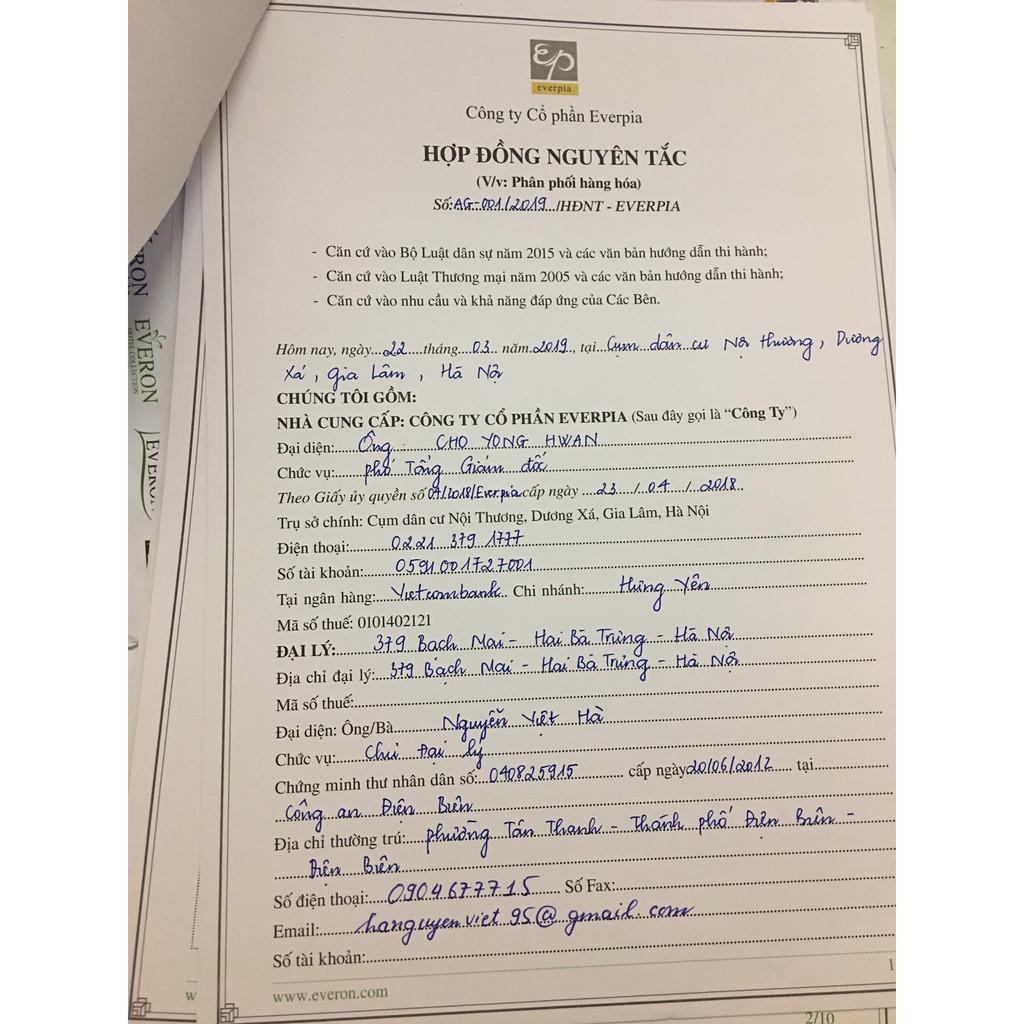 EP
everpia
Công ty Cổ phần Everpia
HỢP ĐỒNG NGUYÊN TẮC
(V/v: Phân phối hàng hóa)
Số:AG-001/2019../HĐNT - EVERPIA
- Căn cứ vào Bộ Luật dân sự năm 2015 và các văn bản hướng dẫn thi hành;
- Căn cứ vào Luật Thương mại năm 2005 và các văn bản hướng dẫn thi hành;
- Căn cứ vào nhu cầu và khả năng đáp ứng của Các Bên.
Hôm nay, ngày...22....tháng...03.. năm.2019., tại...Cụm dân cư Nội Thương, Dương
Xá, Gia Lâm, Hà Nội
CHÚNG TÔI GỒM:
NHÀ CUNG CẤP: CÔNG TY CỔ PHẦN EVERPIA (Sau đây gọi là “Công Ty”)
Đại diện:....Ông : CHO YONG HWAN
Chức vụ:......phó Tổng Giám đốc
Theo Giấy ủy quyền số 04/2018/Everpia cấp ngày ...23..../..04.../...2018..
Trụ sở chính: Cụm dân cư Nội Thương, Dương Xá, Gia Lâm, Hà Nội
Điện thoại:..........0221 379 1777
Số tài khoản:........0591001727001
Tại ngân hàng:....Vietcombank.. Chi nhánh:.........Hưng Yên
Mã số thuế: 0101402121
ĐẠI LÝ:.........379 Bạch Mai - Hai Bà Trưng - Hà Nội
Địa chỉ đại lý:...379 Bạch Mai - Hai Bà Trưng - Hà Nội
Mã số thuế:
Đại diện: Ông/Bà............Nguyễn Việt Hà
Chức vụ:........Chủ Đại lý
Chứng minh thư nhân dân số:..040825915............ cấp ngày20/06/2012..... tại
Công an Điện Biên
Địa chỉ thường trú:...phường Tân Thanh - Thành phố Điện Biên -
Điện Biên
Số điện thoại:....0904677715...... Số Fax:
Email:.........hanguyenviet95@gmail.com
Số tài khoản:
1
www.everon.com
w
2/10
RON
EVERON
HOTEL COLLECTION
EVERON